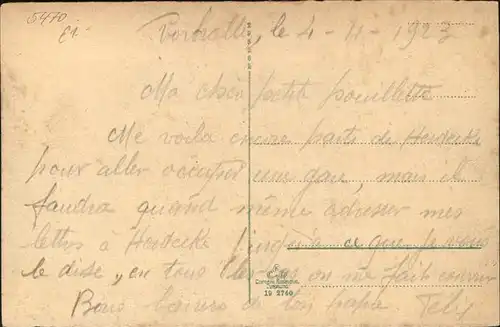 5470
Vorhalle, le 4-11-1923
Ma chère petite pouillette
Me voilà encore parti de Herdecke
pour aller occuper une gare, mais il
faudra quand même adresser mes
lettres à Herdecke jusqu'à ce que je vous
le dise, en tous on me fait courir
Bons baisers de ton papa
19 2760